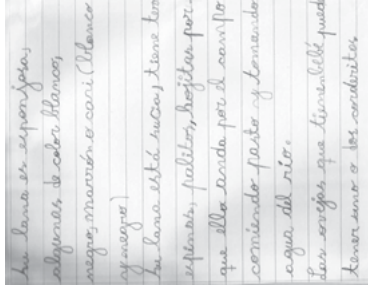 Su lana es esponjosa,
algunas de color blanco,
negro, marrón o cari (blanco
y negro)
Su lana está sucia, tiene tro
espinas, palitos, hojitas por-
que ella anda por el campo
comiendo pasto y tomando
agua del río.
Las ovejas que tienen bebé pued
tener uno o dos corderitos